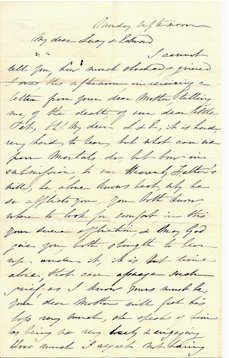 Monday afternoon
My dear Lucy & Edward
I cannot
tell you, how much shocked & grieved
I was this afternoon in receiving a
letter from your dear Mother telling
me, of the death of our dear little
Pet, Oh! My dear it is hard
very hard to bear, but what can we
poor Mortals do but bow in
submission to our Heavenly Father's
will, he alone knows best why he
so afflicts you You both know
where to look for comfort in this
your severe affliction & May God
give you both strength to bear
up under it, it is but time
alone that can assuage such
grief as I know yours must be,
Your dear Mother will feel his
loss very much, she speaks of him
as being so very lovely & engaging
How much I regret not having